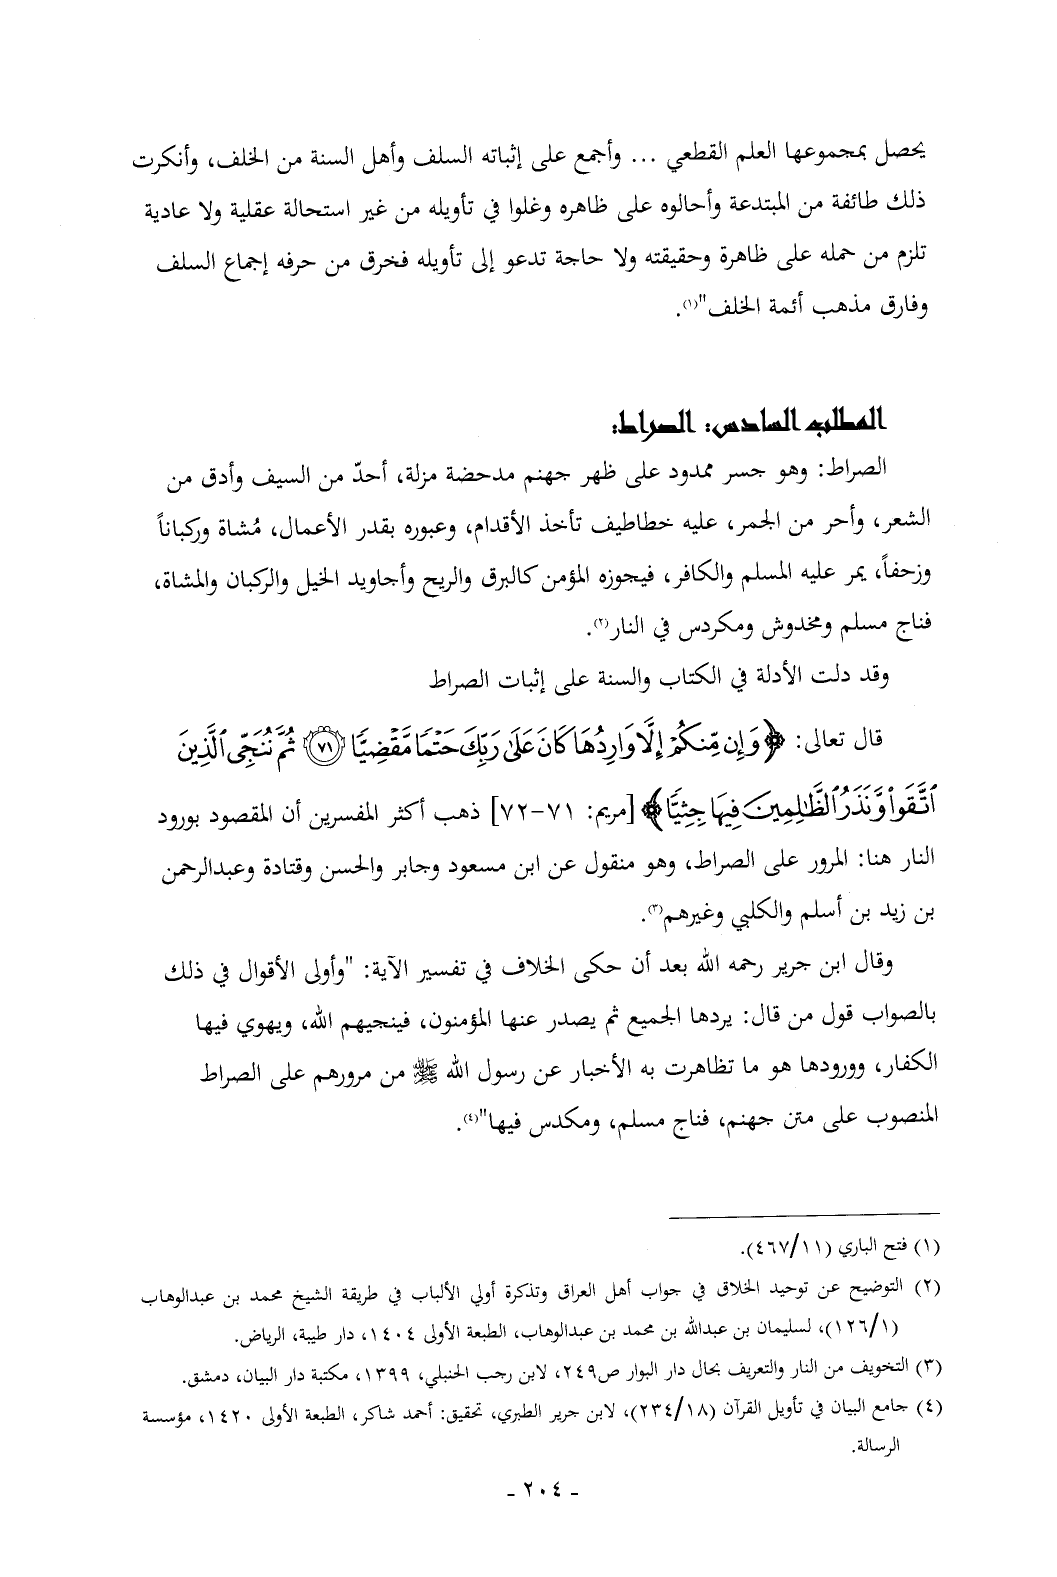 يحصل بمجموعها العلم القطعي ... وأجمع على إثباته السلف وأهل السنة من الخلف، وأنكرت
ذلك طائفة من المبتدعة وأحالوه على ظاهره وغلوا في تأويله من غير استحالة عقلية ولا عادية
تلزم من حمله على ظاهرة وحقيقته ولا حاجة تدعو إلى تأويله فخرق من حرفه إجماع السلف
وفارق مذهب أئمة الخلف"(١).
المطلب السادس: الصراط:
الصراط: وهو جسر ممدود على ظهر جهنم مدحضة مزلة، أحدّ من السيف وأدق من
الشعر، وأحر من الجمر، عليه خطاطيف تأخذ الأقدام، وعبوره بقدر الأعمال، مُشاة وركباناً
وزحفاً، يمر عليه المسلم والكافر، فيجوزه المؤمن كالبرق والريح وأجاويد الخيل والركبان والمشاة،
فناج مسلم ومخدوش ومكردس في النار(٢).
وقد دلت الأدلة في الكتاب والسنة على إثبات الصراط
قال تعالى: ﴿وَإِن مِّنكُمْ إِلَّا وَارِدُهَا كَانَ عَلَىٰ رَبِّكَ حَتْمًا مَّقْضِيًّا ﴿٧١﴾ ثُمَّ نُنَجِّى ٱلَّذِينَ
ٱتَّقَوا۟ وَّنَذَرُ ٱلظَّٰلِمِينَ فِيهَا جِثِيًّا﴾ [مريم: ٧١-٧٢] ذهب أكثر المفسرين أن المقصود بورود
النار هنا: المرور على الصراط، وهو منقول عن ابن مسعود وجابر والحسن وقتادة وعبدالرحمن
بن زيد بن أسلم والكلبي وغيرهم(٣).
وقال ابن جرير رحمه الله بعد أن حكى الخلاف في تفسير الآية: "وأولى الأقوال في ذلك
بالصواب قول من قال: يردها الجميع ثم يصدر عنها المؤمنون، فينجيهم الله، ويهوي فيها
الكفار، وورودها هو ما تظاهرت به الأخبار عن رسول الله ﷺ من مرورهم على الصراط
المنصوب على متن جهنم، فناج مسلم، ومكدس فيها"(٤).
(١) فتح الباري (٤٦٧/١١).
(٢) التوضيح عن توحيد الخلاق في جواب أهل العراق وتذكرة أولي الألباب في طريقة الشيخ محمد بن عبدالوهاب
(١٢٦/١)، لسليمان بن عبدالله بن محمد بن عبدالوهاب، الطبعة الأولى ١٤٠٤، دار طيبة، الرياض.
(٣) التخويف من النار والتعريف بحال دار البوار ص٢٤٩، لابن رجب الحنبلي، ١٣٩٩، مكتبة دار البيان، دمشق.
(٤) جامع البيان في تأويل القرآن (٢٣٤/١٨)، لابن جرير الطبري، تحقيق: أحمد شاكر، الطبعة الأولى ١٤٢٠، مؤسسة
الرسالة.
- ٢٠٤ -